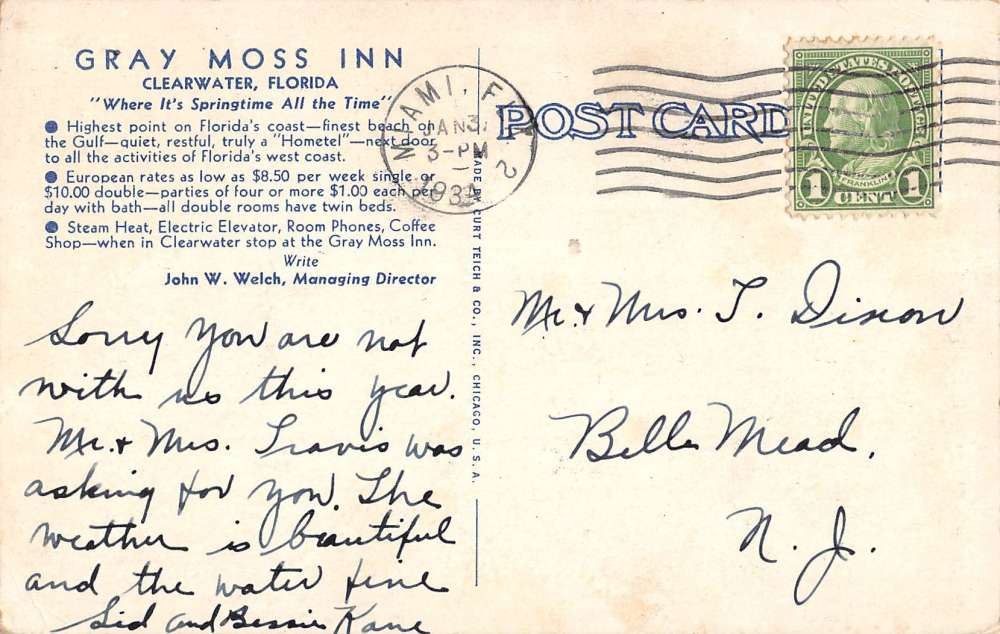 GRAY MOSS INN
CLEARWATER, FLORIDA
"Where It's Springtime All the Time"
● Highest point on Florida's coast—finest beach on
the Gulf—quiet, restful, truly a "Hometel"—next door
to all the activities of Florida's west coast.
● European rates as low as $8.50 per week single or
$10.00 double—parties of four or more $1.00 each per
day with bath—all double rooms have twin beds.
● Steam Heat, Electric Elevator, Room Phones, Coffee
Shop—when in Clearwater stop at the Gray Moss Inn.
Write
John W. Welch, Managing Director
Sorry you are not
with us this year.
Mr. & Mrs. Travis was
asking for you. The
weather is beautiful
and the water fine
Sid and Bessie Kane
MADE BY CURT TEICH & CO., INC., CHICAGO, U. S. A.
MIAMI, FLA.
JAN 3
3-PM
1934
2
POST CARD
UNITED STATES POSTAGE
FRANKLIN
1 CENT 1
Mr. & Mrs. T. Dixon
Belle Mead.
N. J.